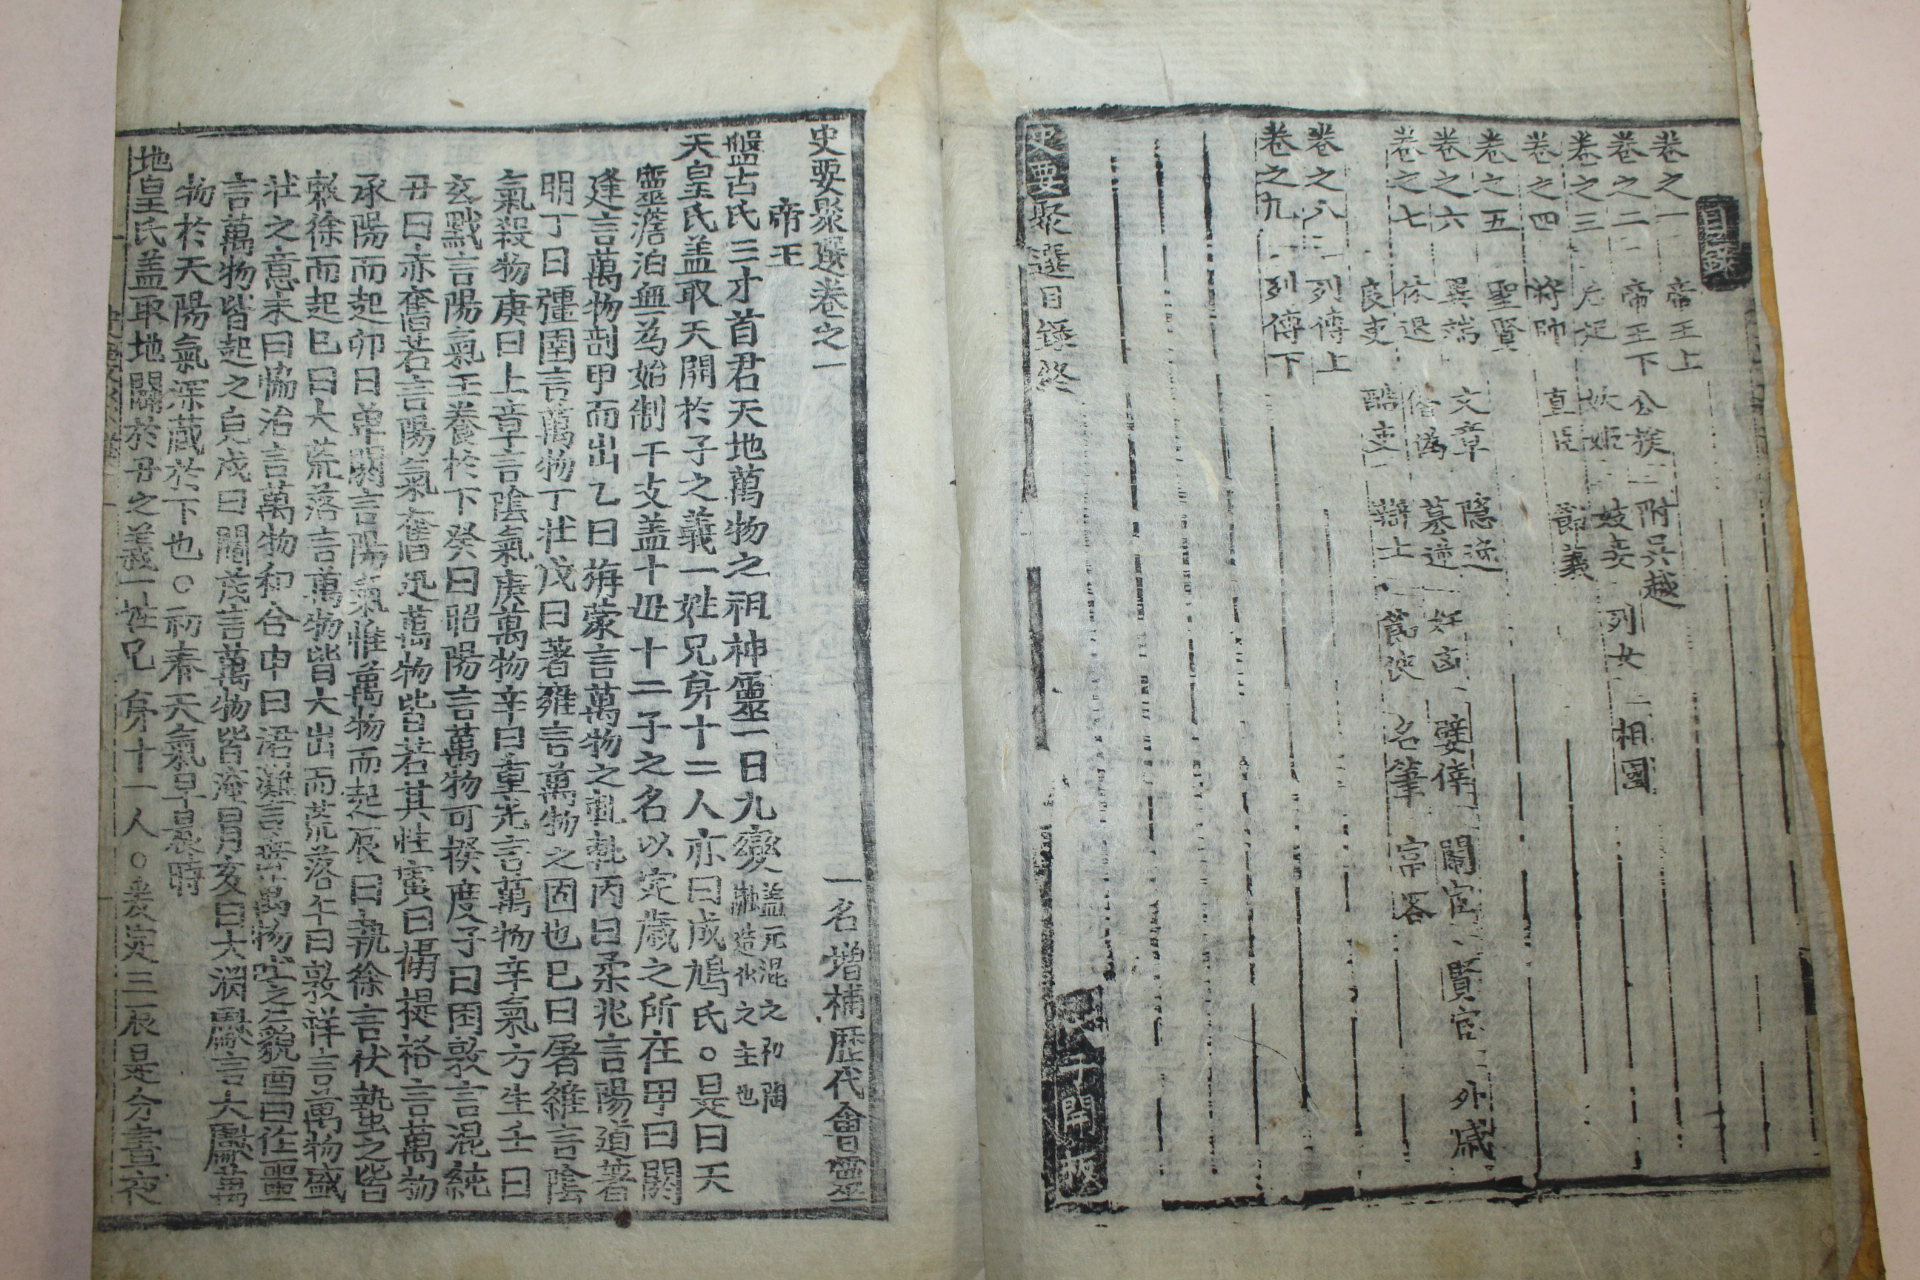 目錄
卷之一 帝王上
卷之二 帝王下 公族 附吳越 列女 相國
卷之三 后妃 妖姬 妓妾
卷之四 將帥 直臣 節義
卷之五 聖賢 文章 隱逸
卷之六 異端 僭偽 墓逆 奸凶 嬖倖 閹宦 賢宦 外戚
卷之七 休退
良吏 酷吏 辯士 節俠 名筆 富客
卷之八 列傳上
卷之九 列傳下
史要聚選目錄終
開板
史要聚選卷之一 一名增補歷代會靈
帝王
盤古氏三才首君天地萬物之祖神靈一日九變盖元混之初陶融造化之主也
天皇氏盖取天開於子之義一姓兄弟十二人亦曰成鳩氏○是曰天
靈澹泊無為始制干支盖十母十二子之名以定歲之所在甲曰閼
逢言萬物剖甲而出乙曰旃蒙言萬物之軋軋丙曰柔兆言陽道著
明丁曰彊圉言萬物丁壯戊曰著雍言萬物之固也巳曰屠維言陰
氣殺物庚曰上章言陰氣庚萬物辛曰重光言萬物辛氣方生壬曰
玄黓言陽氣壬養於下癸曰昭陽言萬物可揆度子曰困敦言混純
丑曰赤奮若言陽氣奮迅萬物皆若其性寅曰攝提格言萬物
承陽而起卯曰單閼言陽氣惟萬物而起辰曰執徐言伏蟄之皆
敕徐而起巳曰大荒落言萬物皆大出而荒落午曰敦牂言萬物盛
壯之意未曰恊洽言萬物和合申曰涒灘言 萬物吐之之貌酉曰作噩
言萬物皆起之皃戍曰閹茂言萬物皆淹冒亥曰大淵獻言大獻萬
物於天陽氣深藏於下也○初春天氣早晨時
地皇氏盖取地闢於丑之義一姓兄弟十一人○爰定三辰是分晝夜